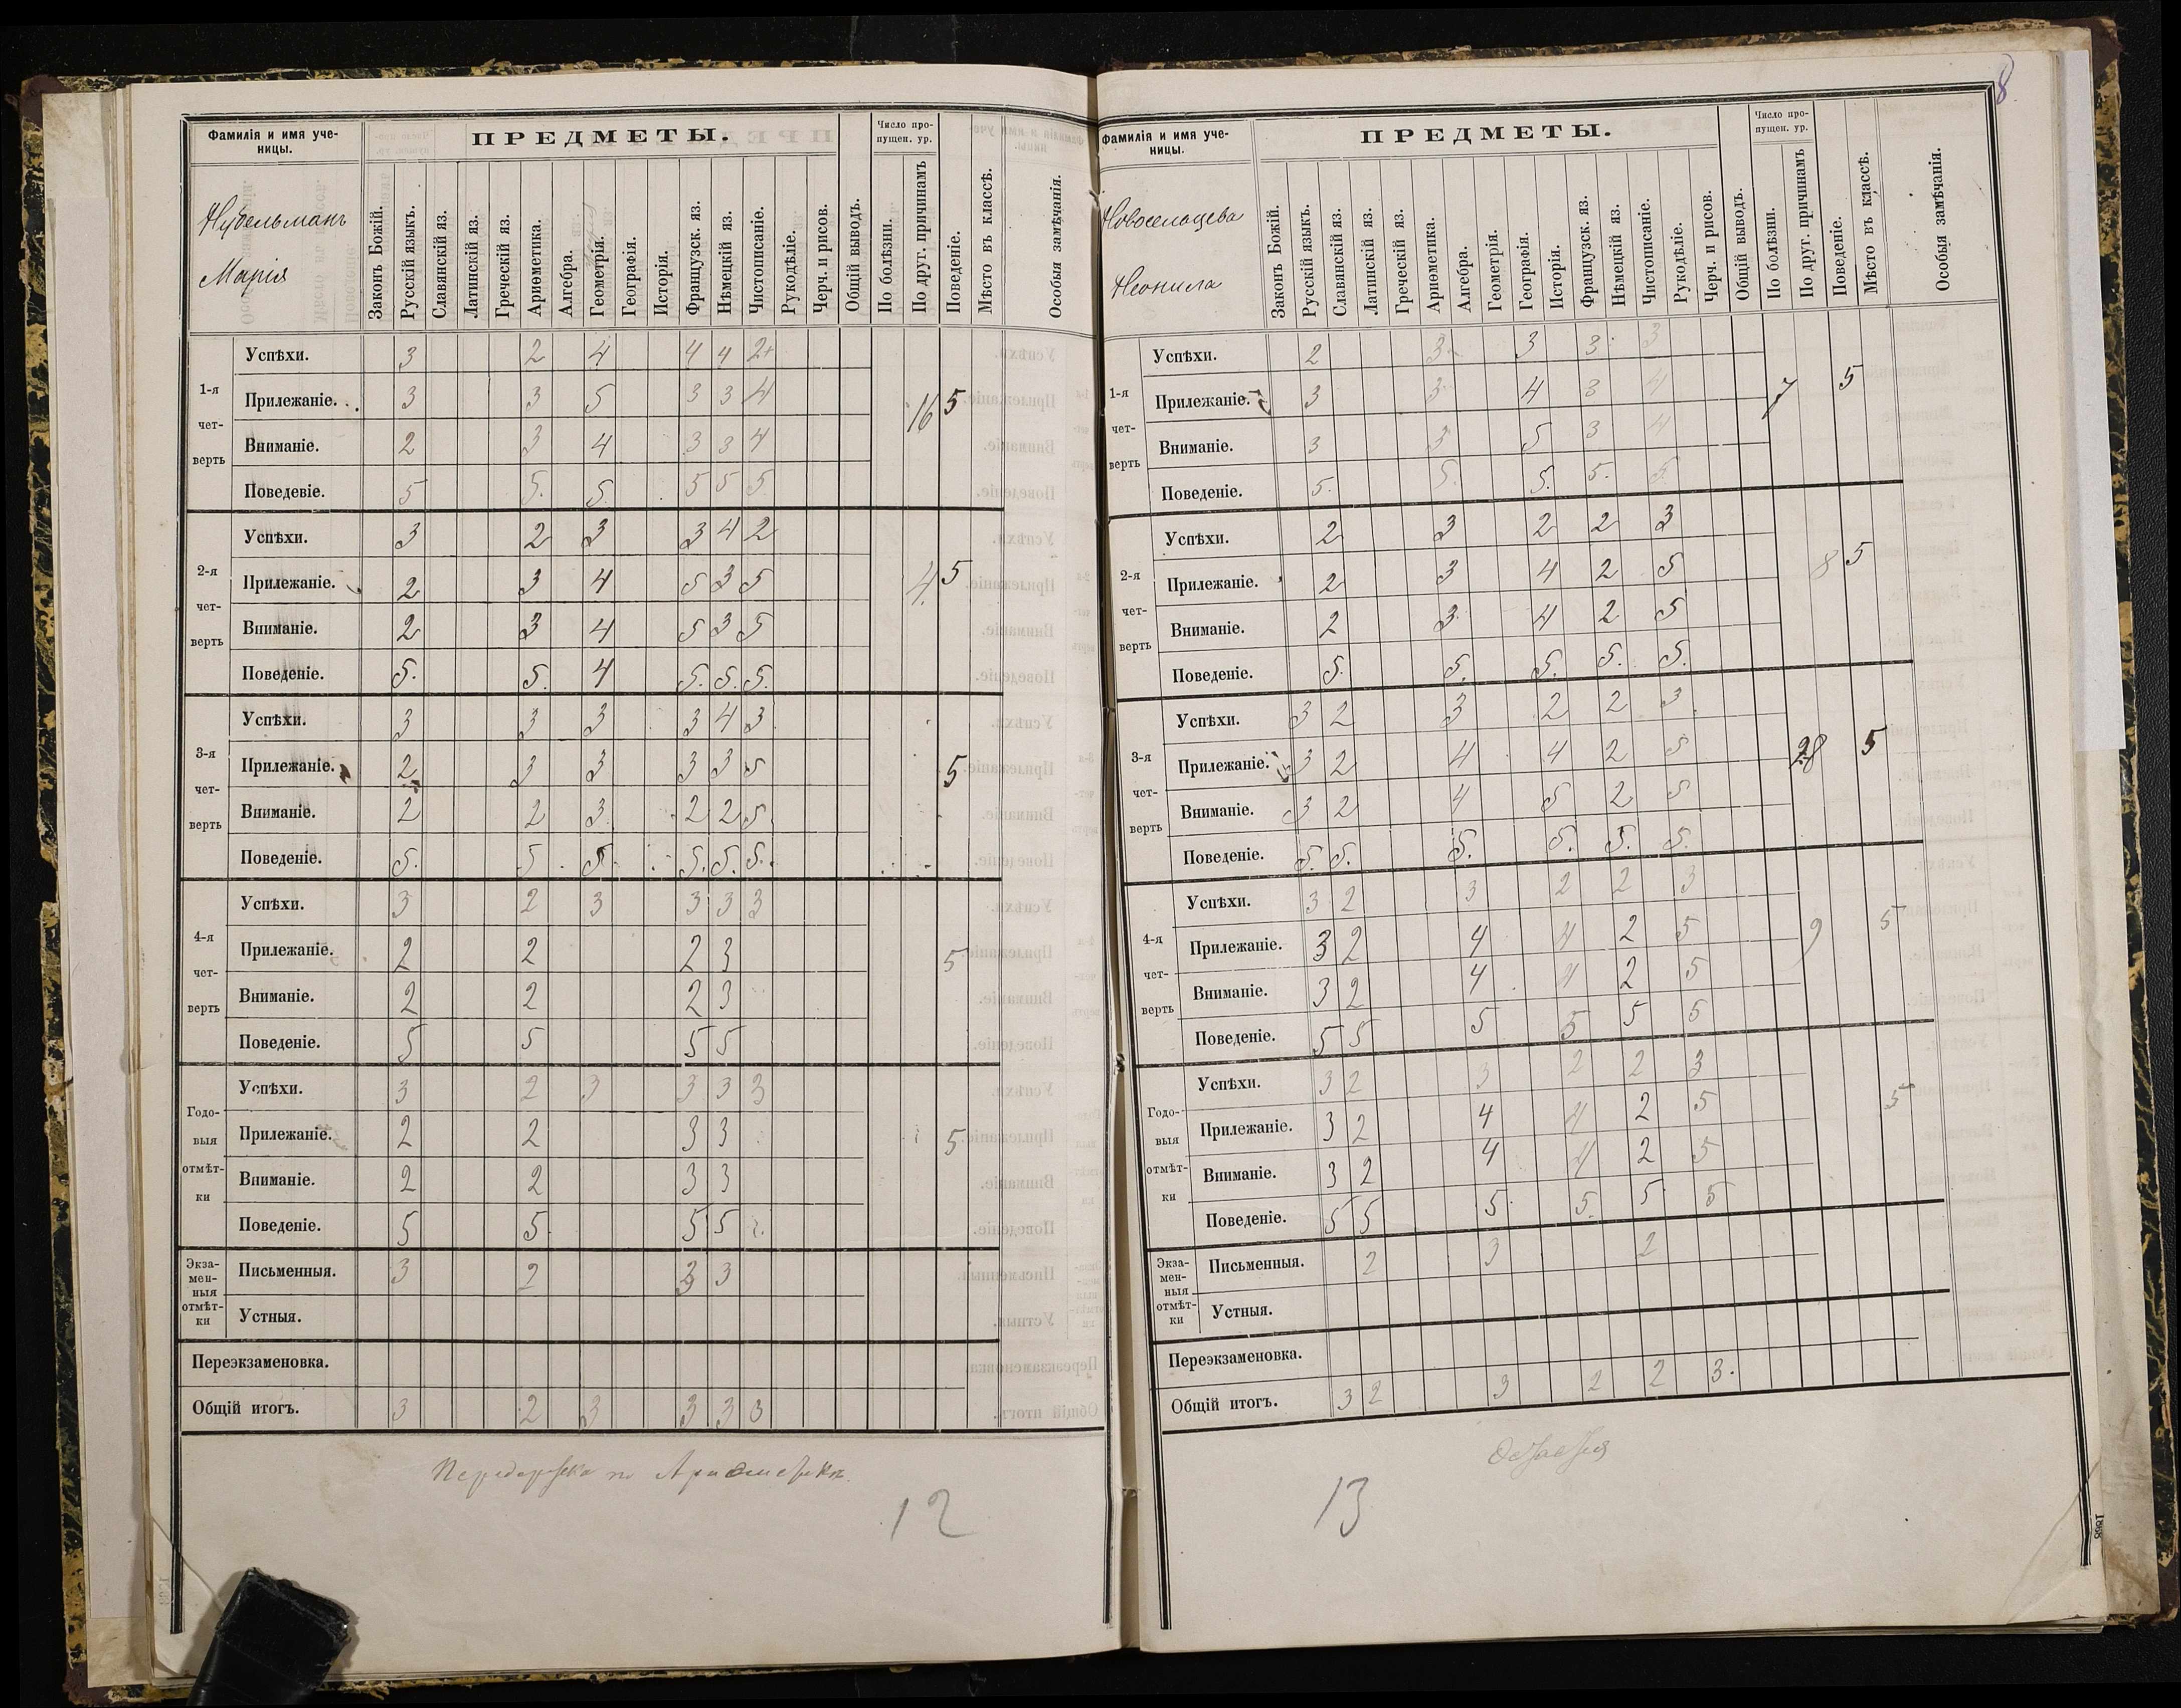 8
Фамилія и имя уче-
ницы.
ПРЕДМЕТЫ.
Число про-
пущен. ур.
Нудельманъ
Марія
Законъ Божій.
Русскій языкъ.
Славянскій яз.
Латинскій яз.
Греческій яз.
Ариѳметика.
Алгебра.
Геометрія.
Географія.
Исторія.
Французск. яз.
Нѣмецкій яз.
Чистописаніе.
Рукодѣліе.
Черч. и рисов.
Общій выводъ.
По болѣзни.
По друг. причинамъ
Поведеніе.
Мѣсто въ классѣ.
Особыя замѣчанія.
1-я
чет-
верть
Успѣхи. 3 2 4 4 4 2+
Прилежаніе. 3 3 5 3 3 4 16 5
Вниманіе. 2 3 4 3 3 4
Поведевіе. 5 5. 5. 5 5 5
2-я
чет-
верть
Успѣхи. 3 2 3 3 4 2
Прилежаніе. 2 3 4 5 3 5 4. 5
Вниманіе. 2 3 4 5 3 5
Поведеніе. 5. 5. 4 5. 5. 5.
3-я
чет-
верть
Успѣхи. 3 3 3 3 4 3
Прилежаніе. 2 3 3 3 3 5 5
Вниманіе. 2 2 3 2 2 5
Поведеніе. 5. 5 5. 5. 5. 5.
4-я
чет-
верть
Успѣхи. 3 2 3 3 3 3
Прилежаніе. 2 2 2 3 5
Вниманіе. 2 2 2 3
Поведеніе. 5 5 5 5
Годо-
выя
отмѣт-
ки
Успѣхи. 3 2 3 3 3 3
Прилежаніе. 2 2 3 3 5
Вниманіе. 2 2 3 3
Поведеніе. 5 5. 5 5
Экза-
мен-
ныя
отмѣт-
ки
Письменныя. 3 2 3 3
Устныя.
Переэкзаменовка.
Общій итогъ. 3 2 3 3 3 3
12
Фамилія и имя уче-
ницы.
ПРЕДМЕТЫ.
Число про-
пущен. ур.
Новосельцева
Неонила
Законъ Божій.
Русскій языкъ.
Славянскій яз.
Латинскій яз.
Греческій яз.
Ариѳметика.
Алгебра.
Геометрія.
Географія.
Исторія.
Французск. яз.
Нѣмецкій яз.
Чистописаніе.
Рукодѣліе.
Черч. и рисов.
Общій выводъ.
По болѣзни.
По друг. причинамъ
Поведеніе.
Мѣсто въ классѣ.
Особыя замѣчанія.
1-я
чет-
верть
Успѣхи. 2 3- 3 3 3
Прилежаніе. 3 3 4 3 4 7 5
Вниманіе. 3 3 5 3 4
Поведеніе. 5. 5. 5. 5. 5.
2-я
чет-
верть
Успѣхи. 2 3 2 2 3
Прилежаніе. 2 3 4 2 5 8 5
Вниманіе. 2 3 4 2 5
Поведеніе. 5. 5. 5. 5. 5.
3-я
чет-
верть
Успѣхи. 3 2 3 2 2 3
Прилежаніе. 3 2 4 4 2 5 28 5
Вниманіе. 3 2 4 5 2 5
Поведеніе. 5. 5. 5. 5. 5. 5.
4-я
чет-
верть
Успѣхи. 3 2 3 2 2 3
Прилежаніе. 3 2 4 4 2 5 9 5
Вниманіе. 3 2 4 4 2 5
Поведеніе. 5 5 5 5 5 5
Годо-
выя
отмѣт-
ки
Успѣхи. 3 2 3 2 2 3
Прилежаніе. 3 2 4 4 2 5 5
Вниманіе. 3 2 4 4 2 5
Поведеніе. 5 5 5. 5. 5 5
Экза-
мен-
ныя
отмѣт-
ки
Письменныя. 2 3 2
Устныя.
Переэкзаменовка.
Общій итогъ. 3 2 3 2 2 3.
13